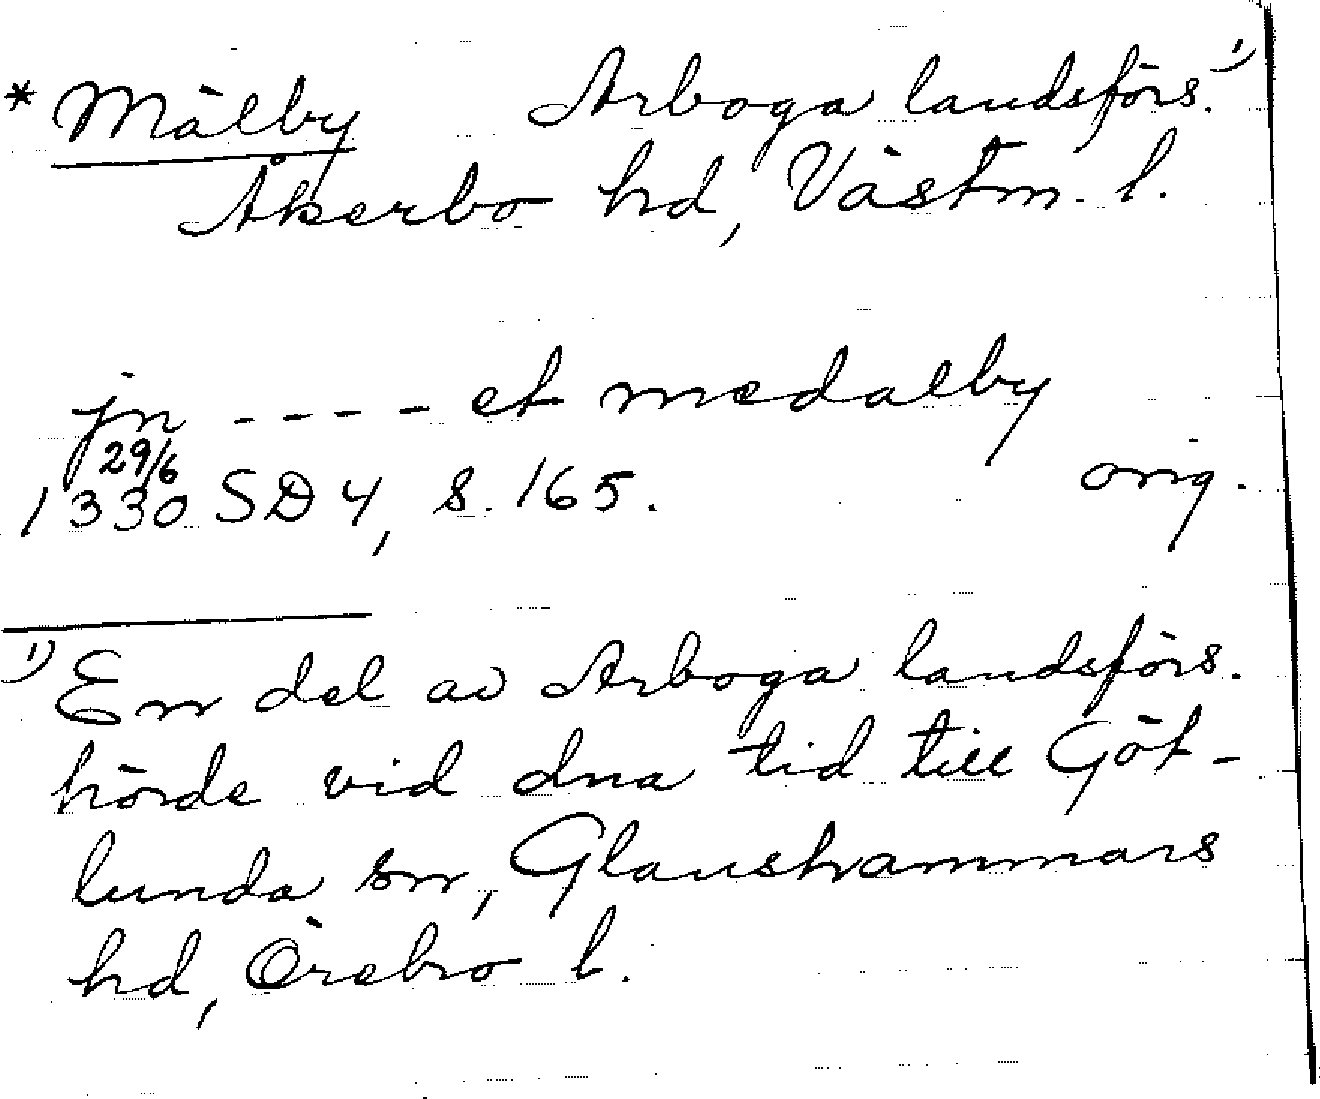 * Mälby Arboga landsförs. 1)
Åkerbo hd, Västm. l.
jn ---- et medalby
29/6
1330 SD 4, s. 165. orig.
1) En del av Arboga landsförs.
hörde vid dna tid till Göt-
lunda sn, Glanshammars
hd, Örebro l.